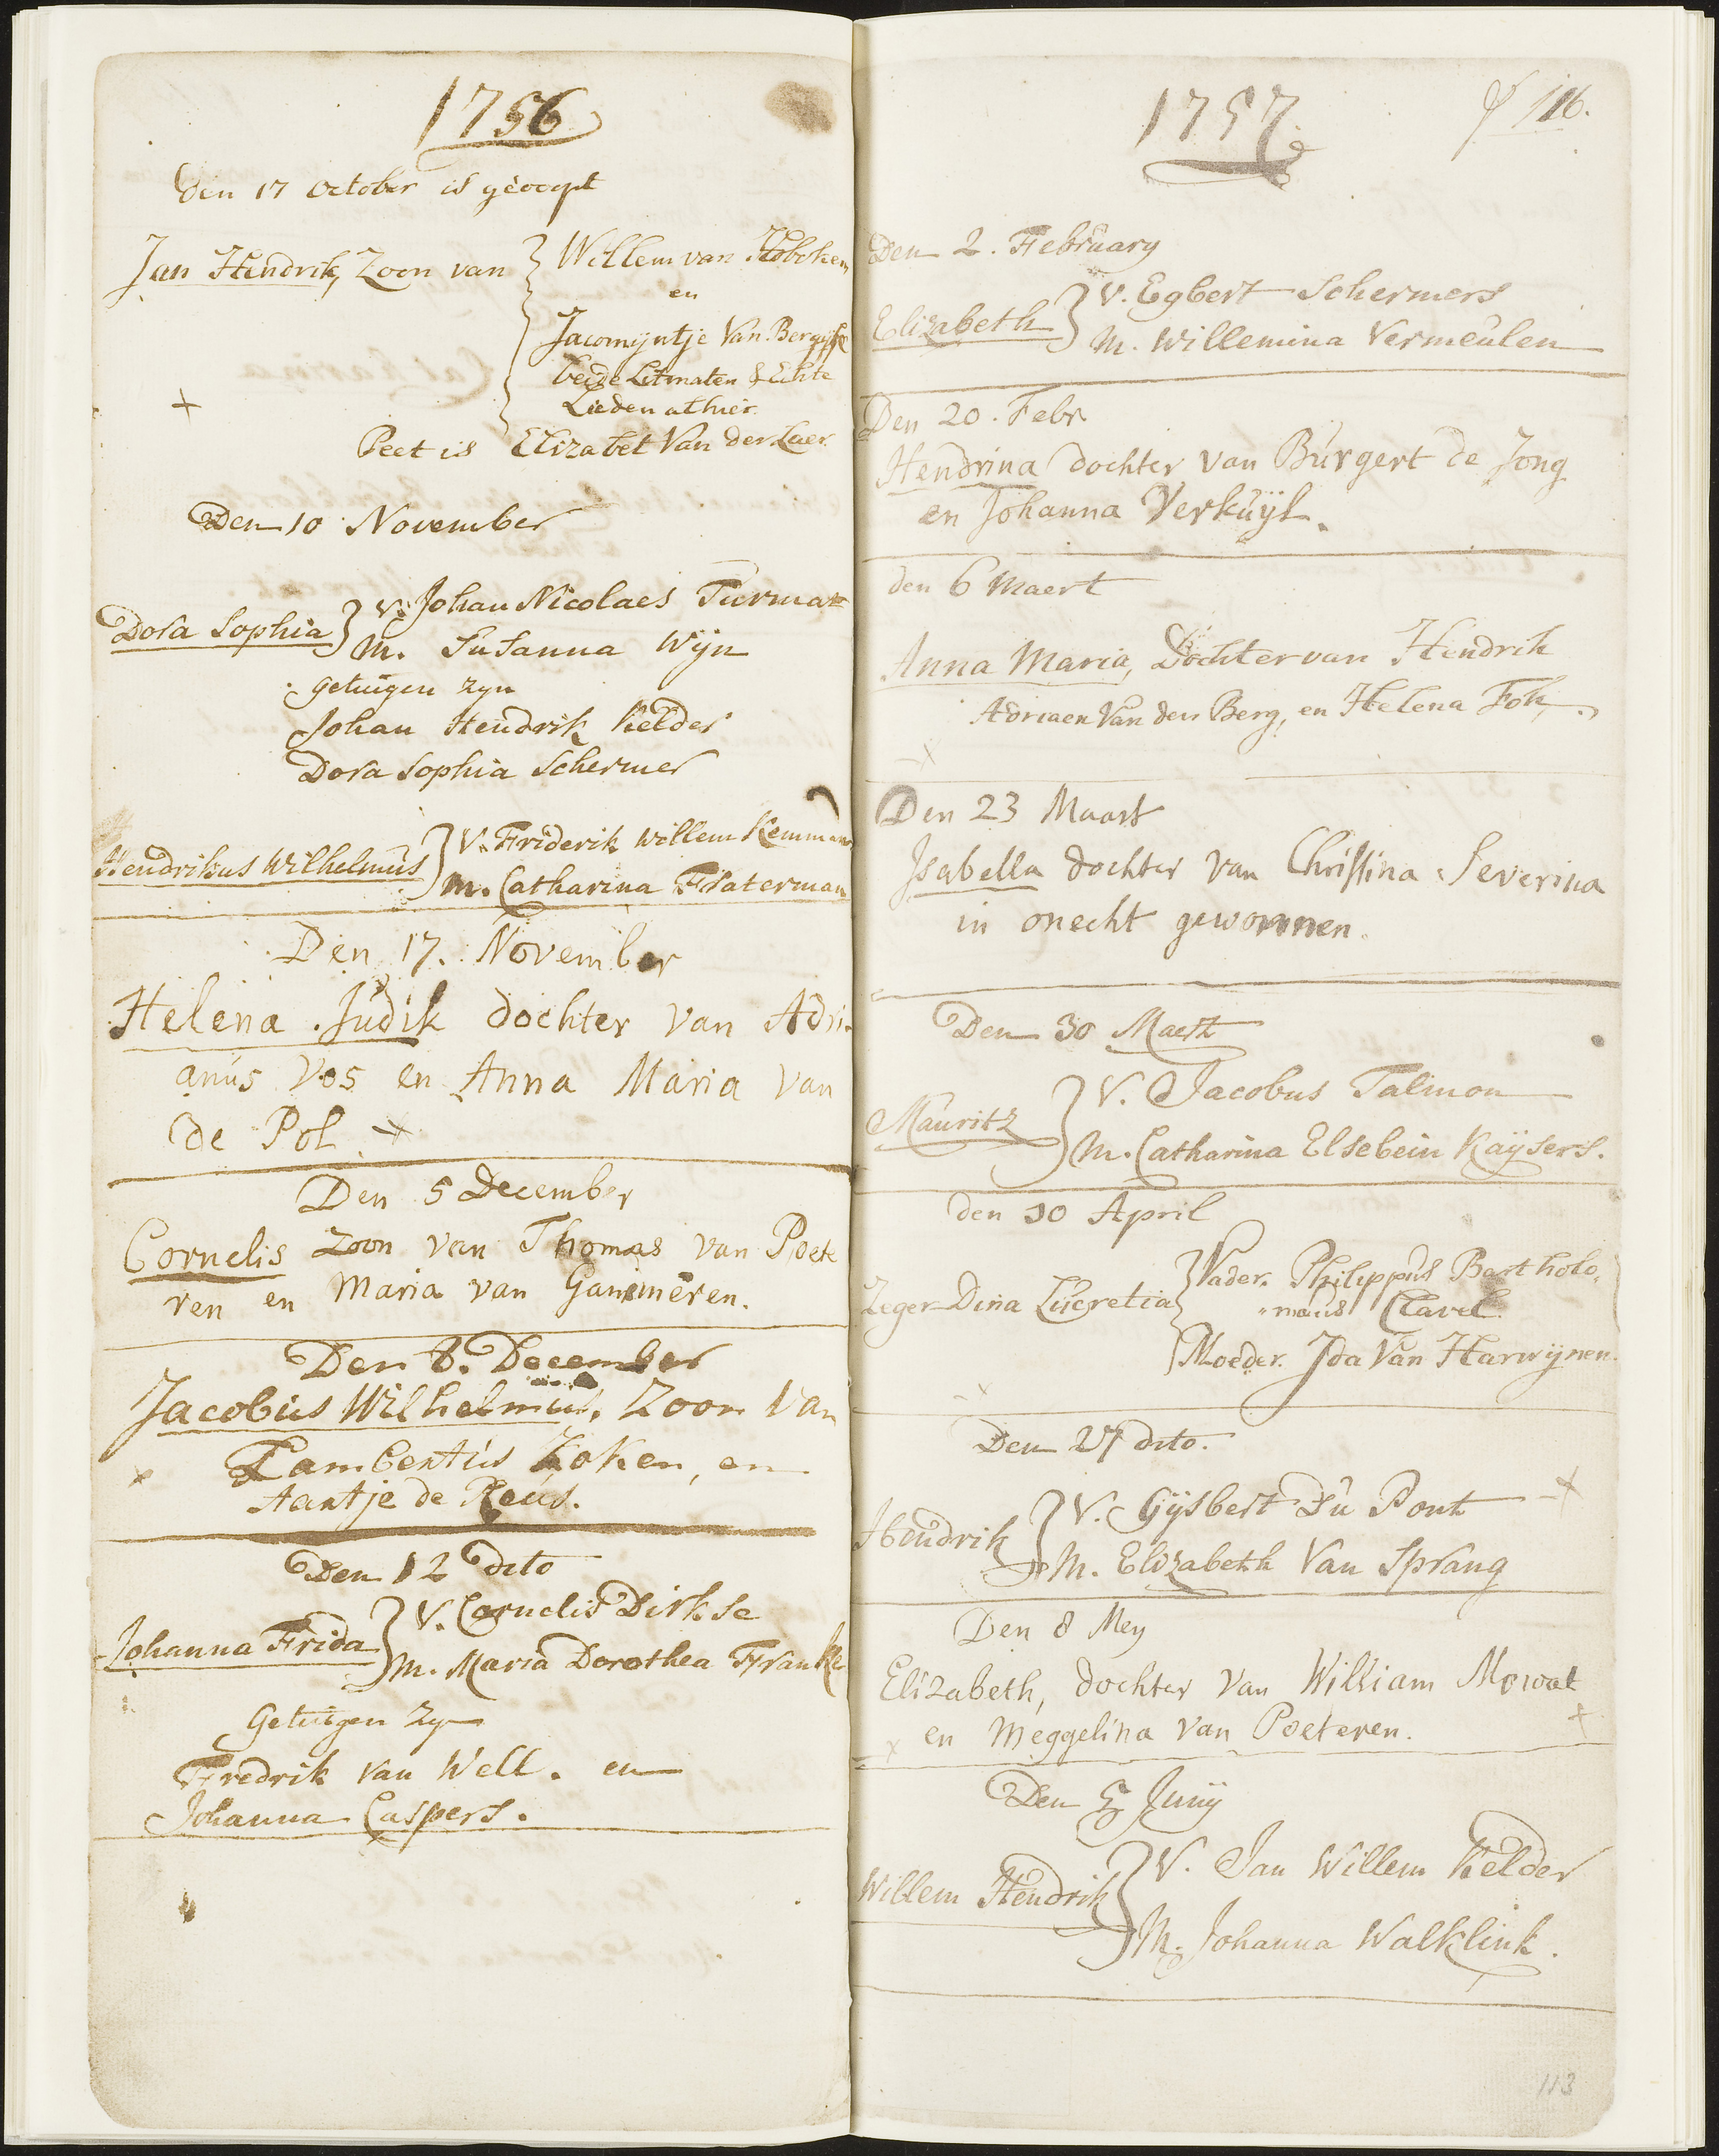 1756
Den 17 October is gedoopt
Jan Hendrik, Zoon van } Willem van Hoboken
en
Jacomijntje Van Bergijk
beide Litmaten & Echte
Lieden alhier.
+
Peet is Elizabet Van der Laer.
Den 10 November
Dora Sophia } V. Johan Nicolaes Tuerman
M. Susanna Wijn
getuigen zyn
Johan Hendrik Kelder
Dora Sophia Schermer
Hendrikus Wilhelmus } V. Friderik Willem Kemmann
M. Catharina Fraterman
Den 17. November
Helena Judik dochter van Adri-
anus Vos en Anna Maria van
de Pol. +
Den 5 December
Cornelis zoon van Thomas van Poete
ren en Maria van Gammeren.
Den 8. December
Jacobus Wilhelmus, Zoon Van
x Lambertus Koken, en
Aantje de Reus.
Den 12 dito
Johanna Frida } V. Cornelis Dirkse
M. Maria Dorothea Franke
Getuigen zyn
Fredrik van Well. en
Johanna Caspers.
1757
f 116.
Den 2. February
Elizabeth } V. Egbert Schermers
M. Willemina Vermeulen
Den 20. Febr.
Hendrina dochter van Burgert de Jong
en Johanna Verkuyl.
den 6 Maert
Anna Maria, Dochter van Hendrik
Adriaen Van den Berg, en Helena Fok.
x
Den 23 Maart
Isabella dochter van Christina Severina
in onecht gewonnen.
Den 30 Maert
Mauritz } V. Jacobus Talmon
M. Catharina Elsebein Kaysers.
den 10 April
Zeger Dina Lucretia } Vader. Philippus Bartholo,
"maus Clavel.
Moeder. Ida Van Harwijnen.
x
Den 27 dito.
Hendrik } V. Gijsbert Du Pont x
M. Elizabeth Van Sprang
Den 8 Mey
Elizabeth, dochter van William Mowat
x en Meggelina van Poeteren. +
Den 5 Junij
Willem Hendrik } V. Jan Willem Kelder
M. Johanna Walklink.
113